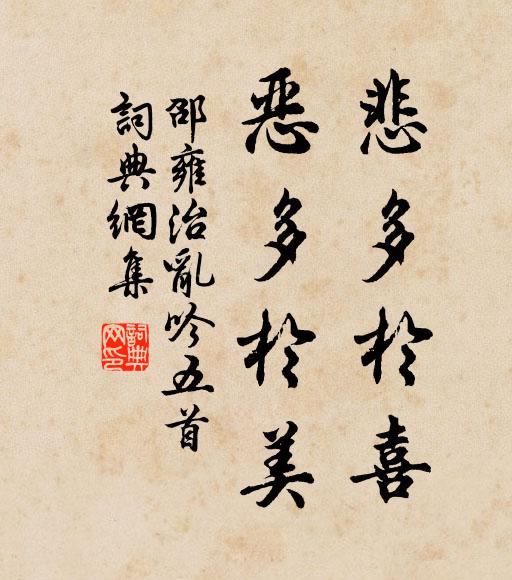 悲多於喜
惡多於美
邵雍治亂吟五首
詞典網集
詞典
网印